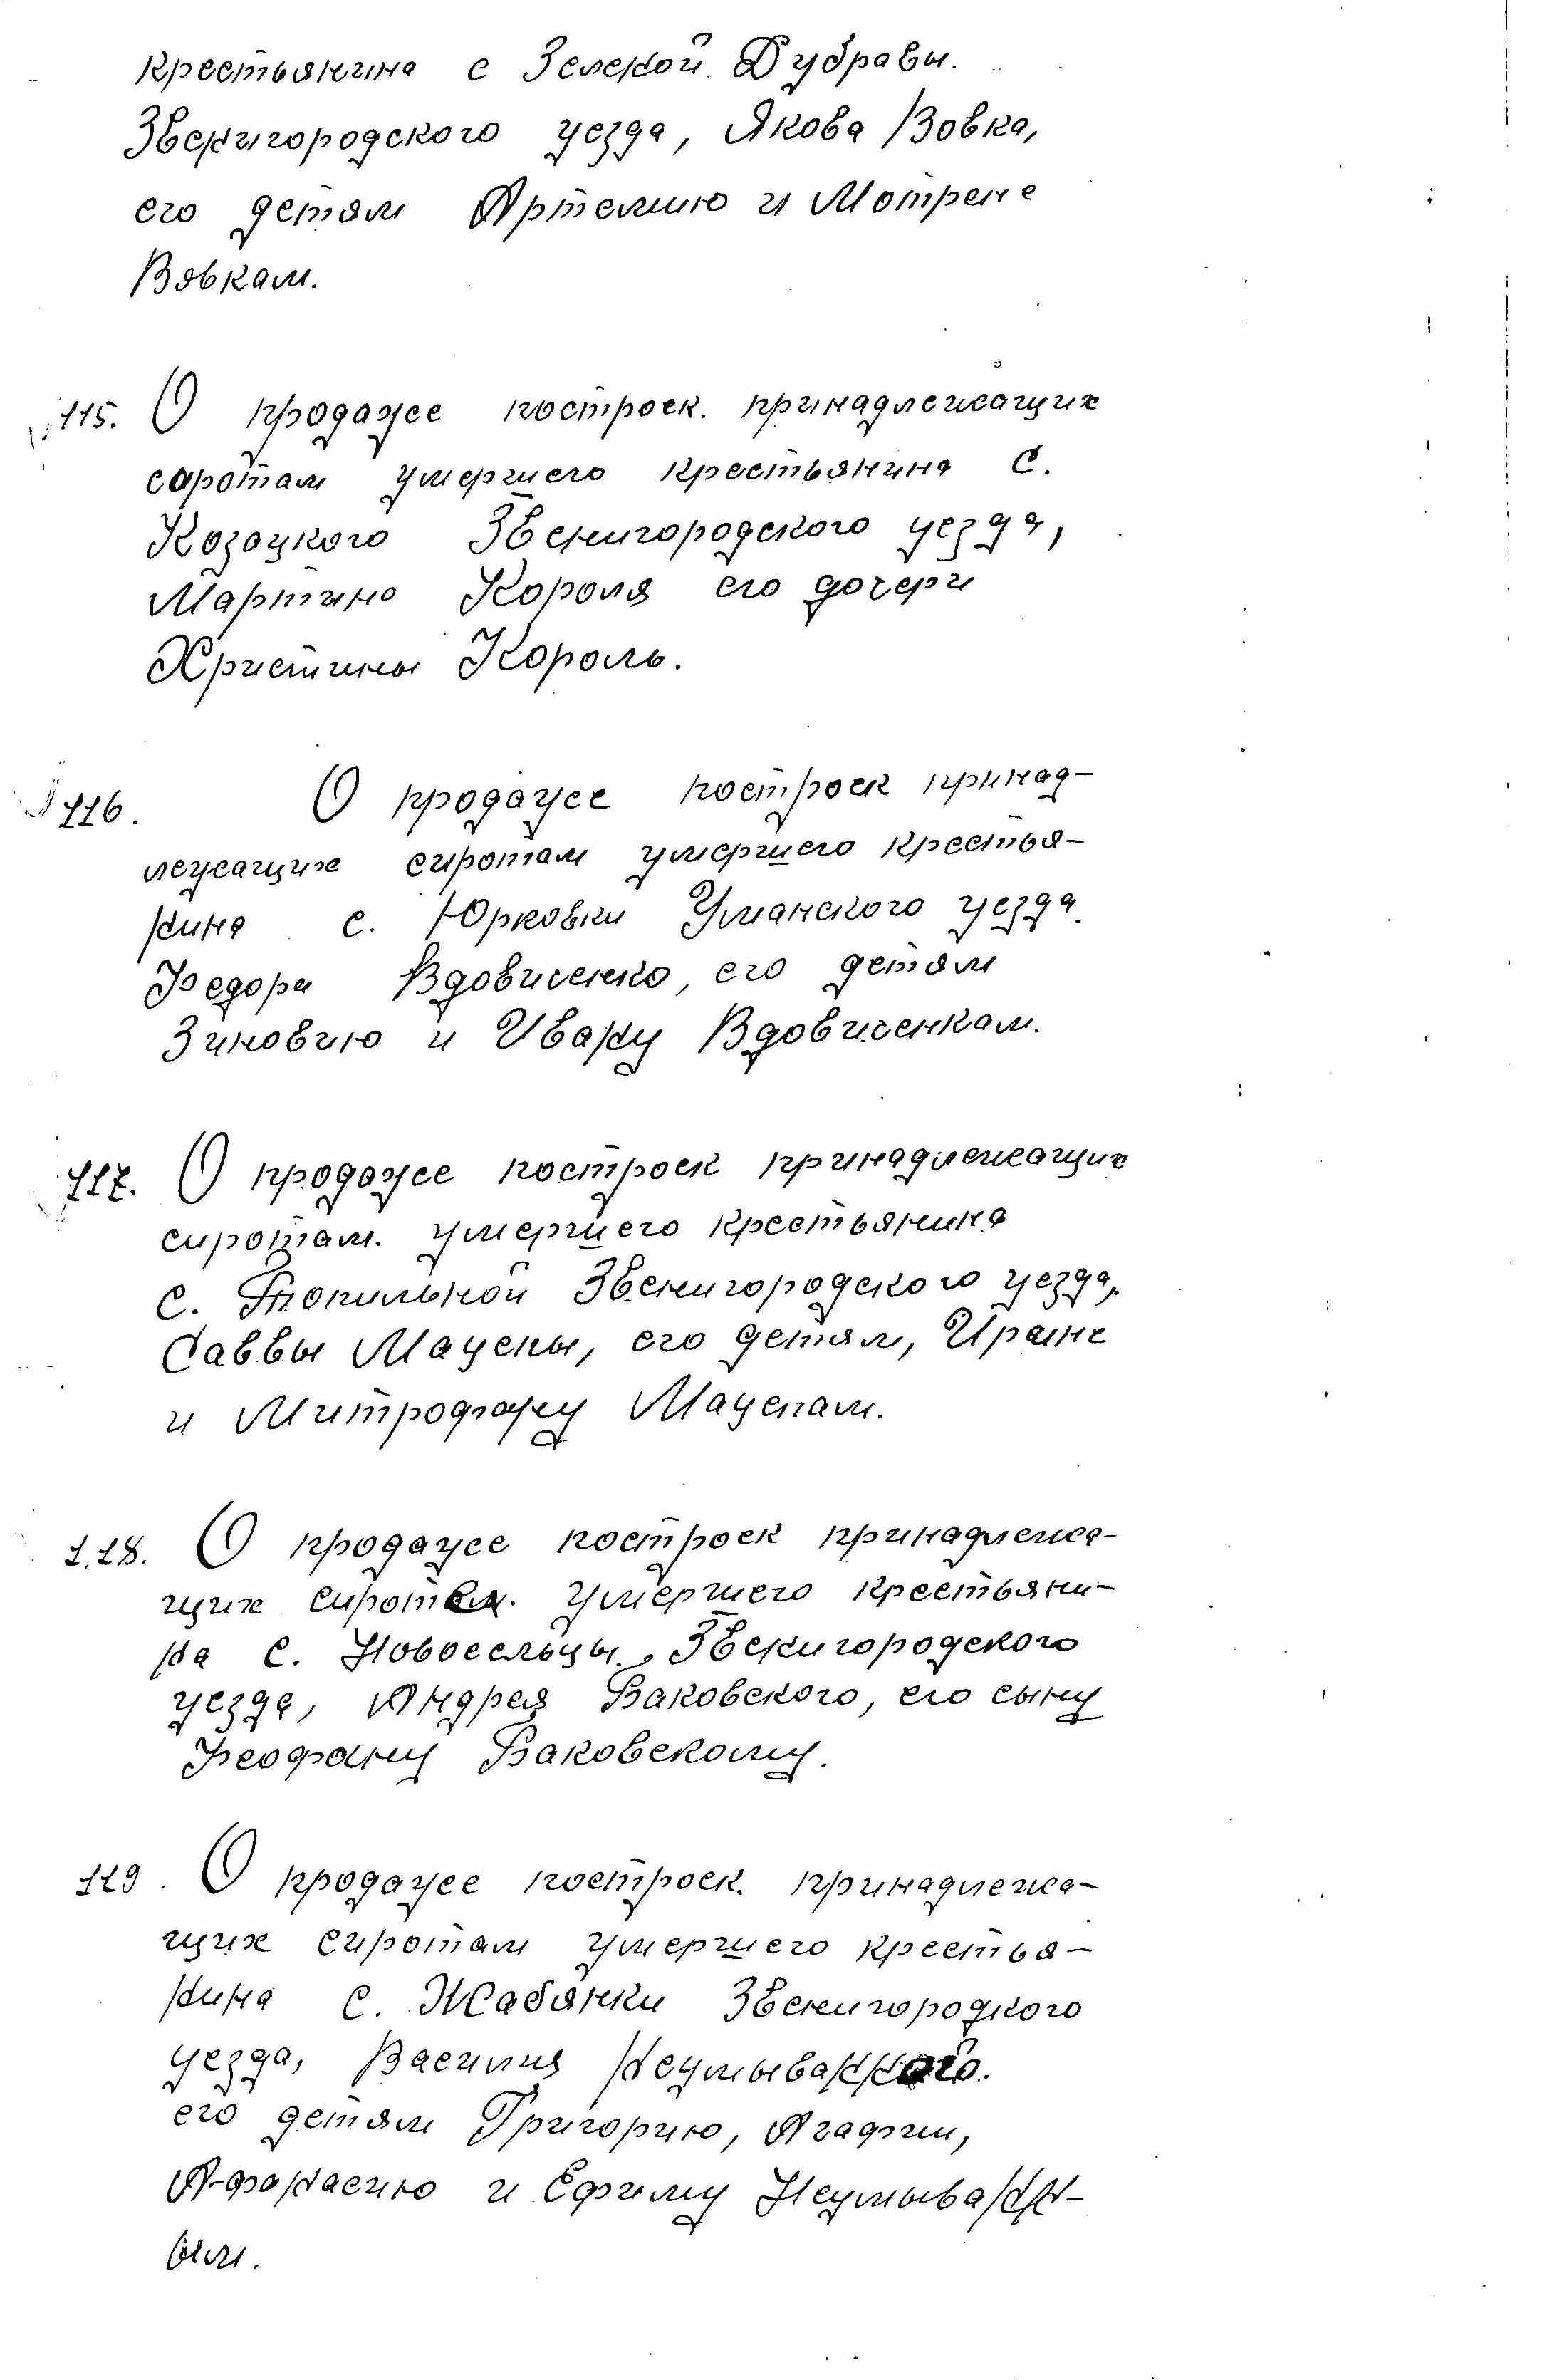 крестьянина с Зеленой Дубравы.
Звенигородского уезда, Якова Вовка,
его детям Артемию и Мотрене
Вовкам.
115. О продаже построек. принадлежащих
саротам умершего крестьянина с.
Козацкого Звенигородского уезда,
Мартина Короля его дочери
Христины Король.
116. О продаже построек принад-
лежащих сиротам умершего крестья-
нина с. Юрковки Уманского уезда.
Федора Вдовиченко, его детям
Зиновию и Ивану Вдовиченкам.
117. О продаже построек принадлежащих
сиротам. умершего крестьянина
с. Топильной Звенигородского уезда,
Саввы Мацепы, его детям, Ирине
и Митрофану Мацепам.
118. О продаже построек принадлежа-
щих сиротам. умершего крестьяни-
на с. Новосельцы, Звенигородского
уезда, Андрея Баковского, его сыну
Феофану Баковскому.
119. О продаже построек. принадлежа-
щих сиротам умершего крестья-
нина с. Жабянки Звенигородкого
уезда, Василия Неумыванного.
его детям Григорию, Агафии,
Афанасию и Ефиму Неумыванн-
ым.